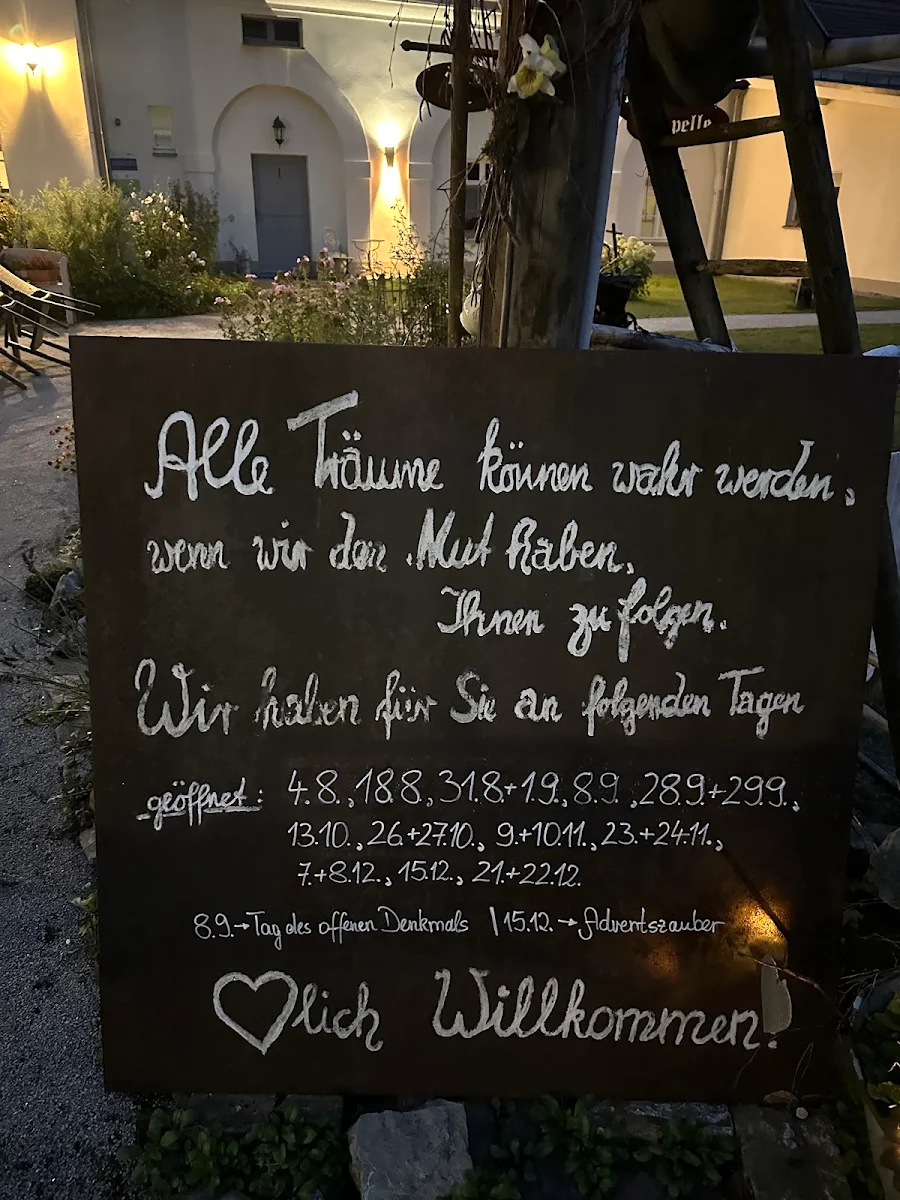 pelle
Alle Träume können wahr werden,
wenn wir den Mut haben,
Ihnen zu folgen.
Wir haben für Sie an folgenden Tagen
geöffnet: 4.8., 18.8., 31.8.+1.9., 8.9., 28.9.+29.9.,
13.10., 26.+27.10., 9.+10.11., 23.+24.11.,
7.+8.12., 15.12., 21.+22.12.
8.9.→Tag des offenen Denkmals | 15.12.→Adventszauber
♡lich Willkommen!